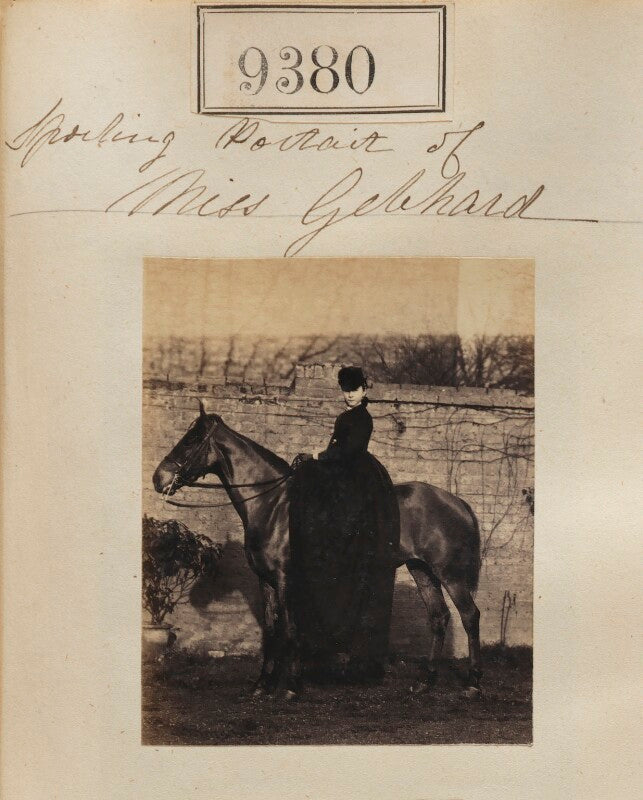 9380
Sporting Portrait of
Miss Gebhard